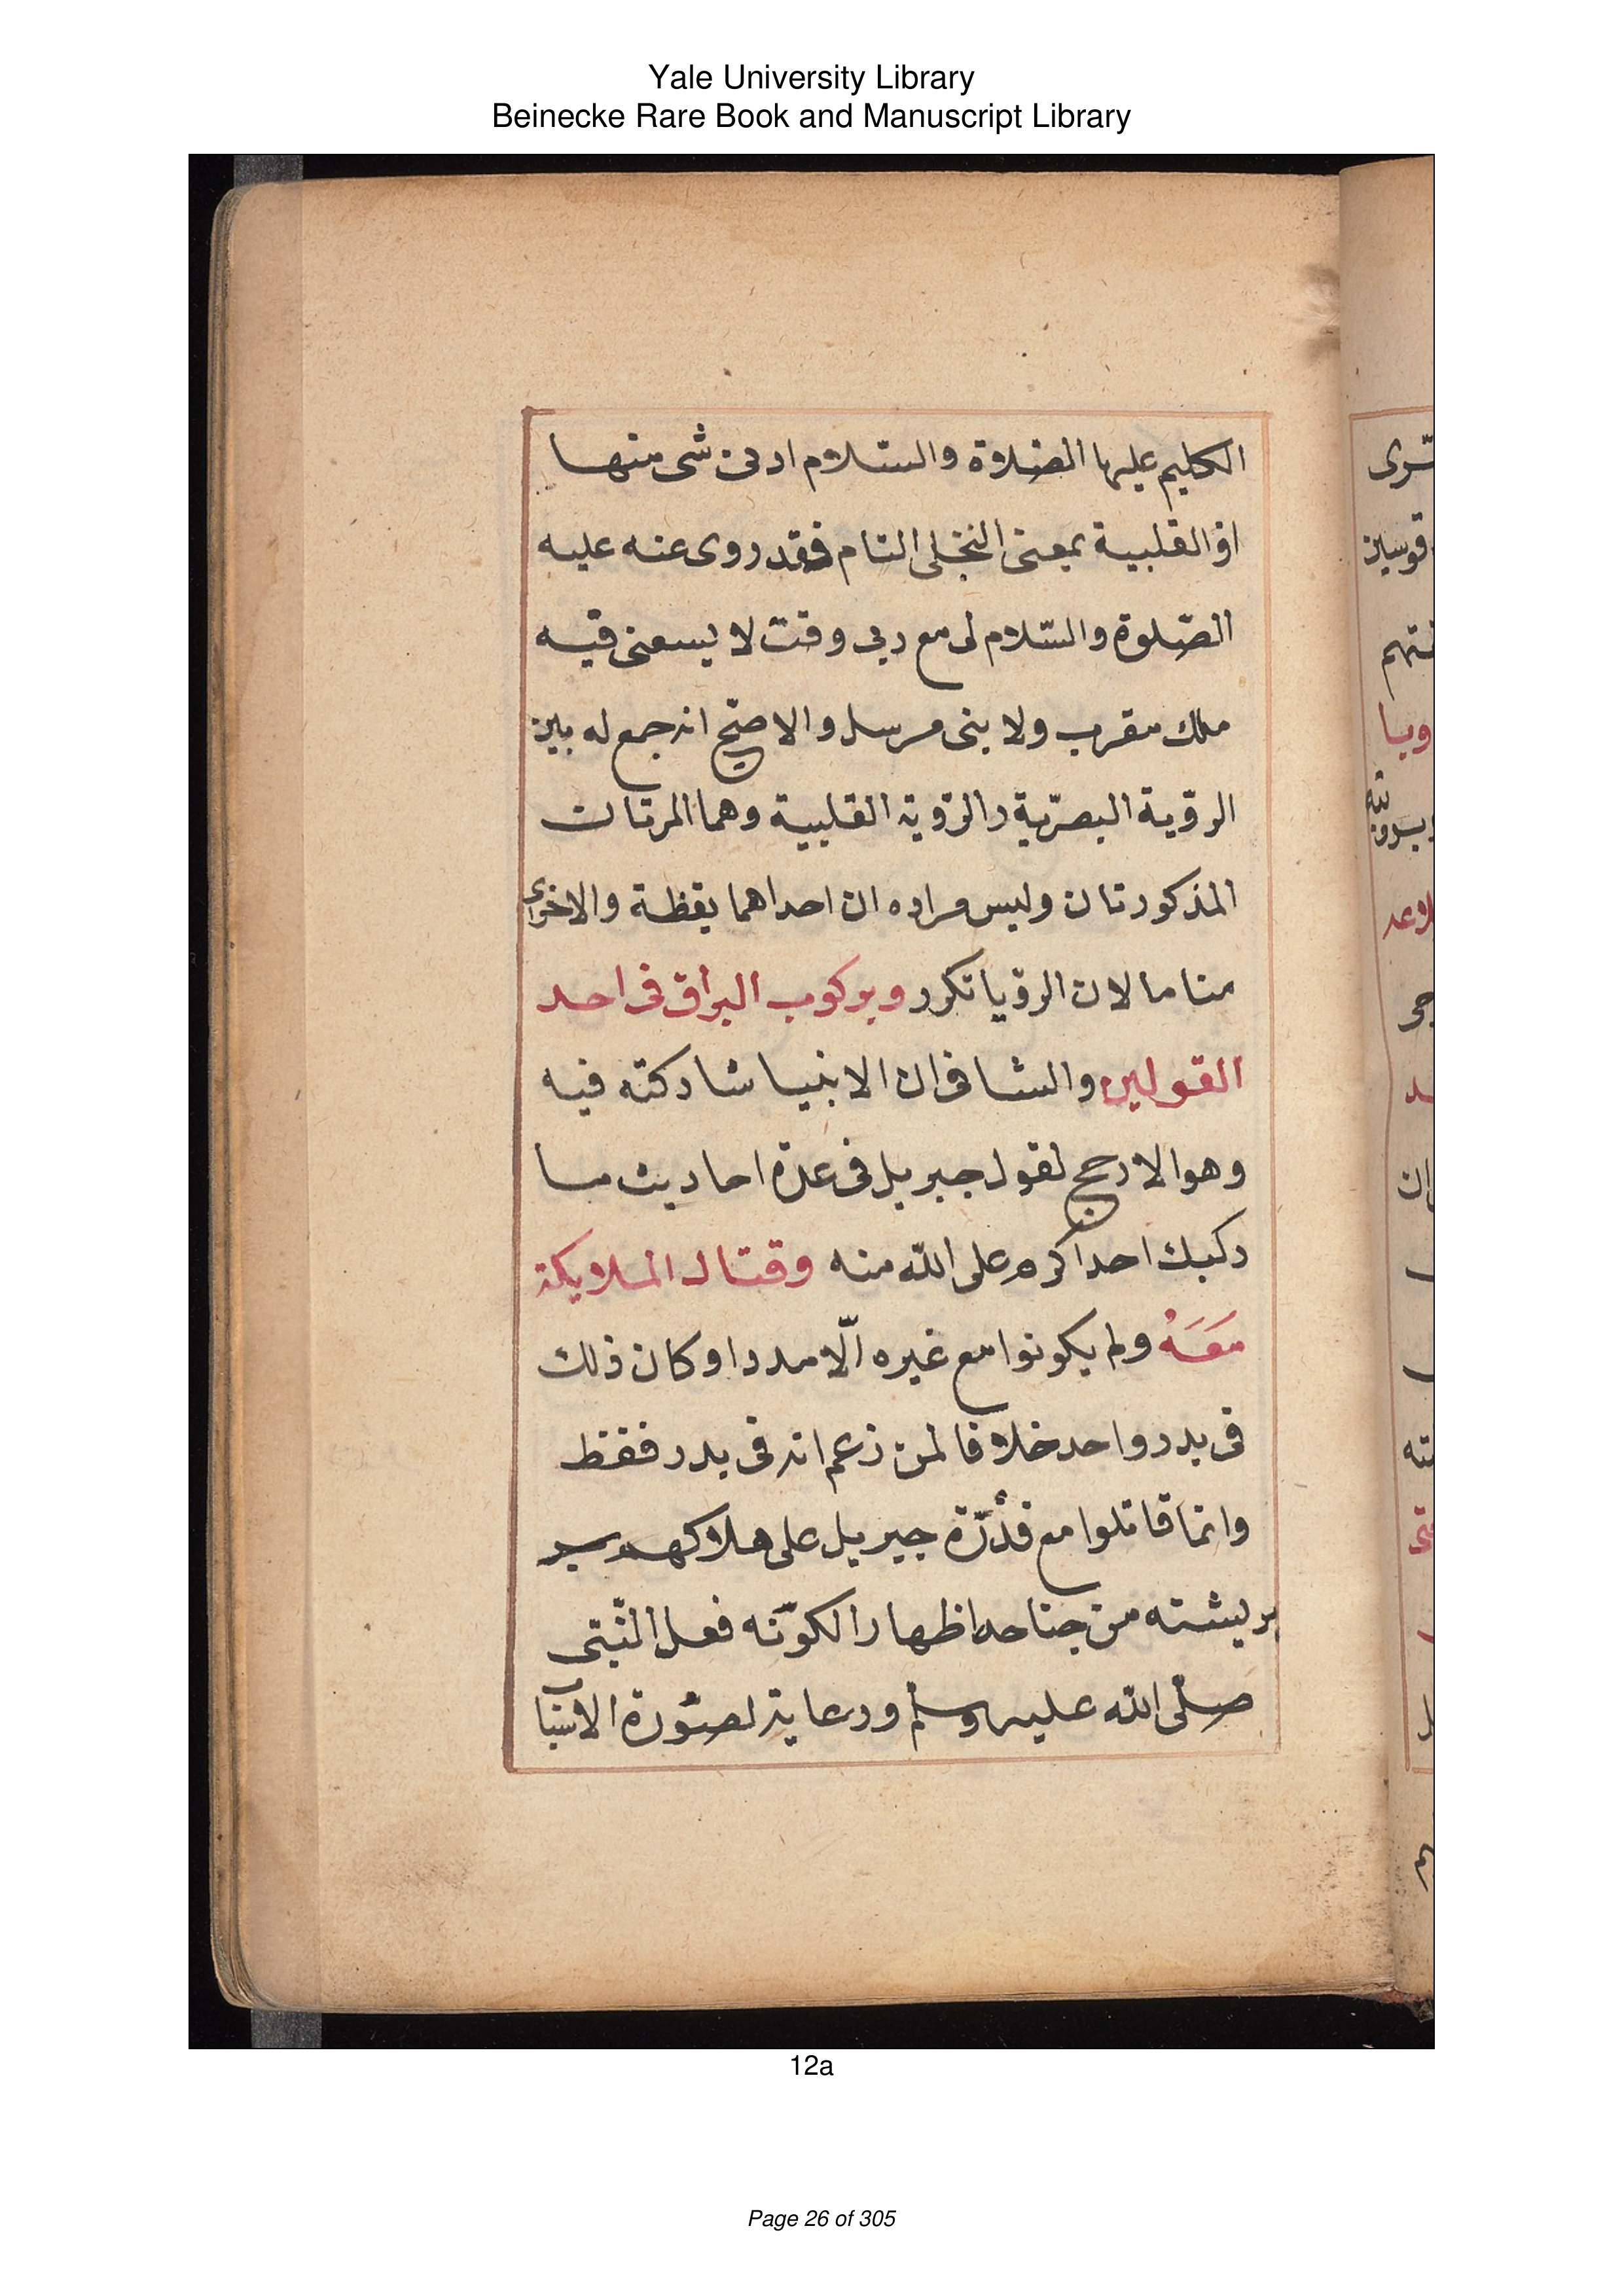 Yale University Library
Beinecke Rare Book and Manuscript Library
الكليم عليهما الصّلاوة والسّلام ادنى شى منها
او القلبية بمعنى التجلى التام فقد روى عنه عليه
الصّلوة والسّلام لى مع ربى وقت لا يسعنى فيه
ملك مقرب ولا نبى مرسل والاصح انه جمع له بين
الرؤية البصرّية والرؤية القلبية وهما المرتان
المذكورتان وليس مراده ان احداهما يقظة والاخرى
مناما لان الرؤيا تكرر وبركوب البراق فى احد
القولين والثانى ان الانبيا شاركته فيه
وهو الارجح لقول جبريل فى عدة احاديث ما
ركبك احد اكرم على اللّه منه وقتال الملايكة
مَعَهُ ولم يكونوا مع غيره الّا مددا وكان ذلك
فى بدر واحد خلافا لمن زعم انه فى بدر فقط
وانما قاتلوا مع قدرة جبريل على هلاكهم
بريشته من جناحه اظهارا لكونه فعل النّبى
صلّى اللّه عليه وسلّم ورعاية لصورة الاسباب
12a
Page 26 of 305